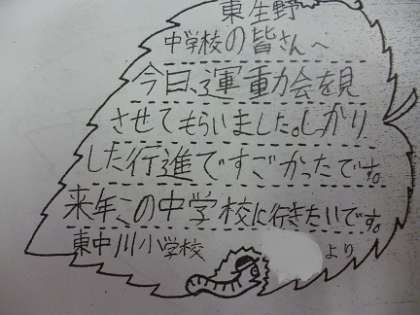 東生野
中学校の皆さんへ
今日、運動会を見
させてもらいました。しっかり
した行進ですごかったです。
来年、この中学校に行きたいです。
東中川小学校 より